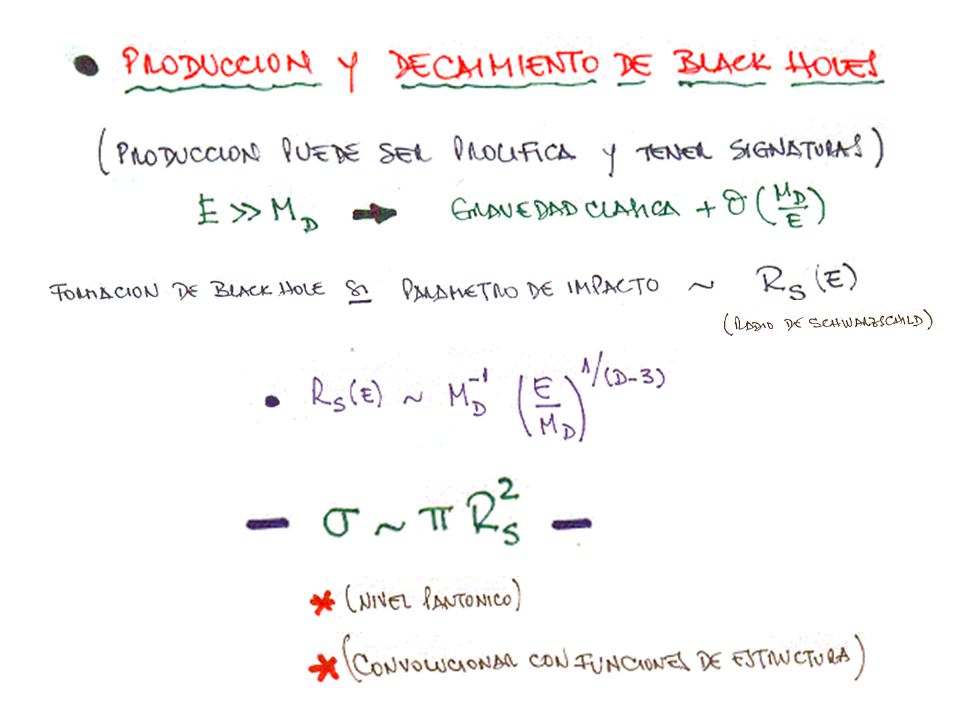 • PRODUCCION Y DECAIMIENTO DE BLACK HOLES
(PRODUCCION PUEDE SER PROLIFICA Y TENER SIGNATURAS)
E >> M_D → GRAVEDAD CLASICA + O(M_D/E)
FORMACION DE BLACK HOLE SI PARAMETRO DE IMPACTO ~ R_S(E)
(RADIO DE SCHWARZSCHILD)
• R_S(E) ~ M_D^-1 (E/M_D)^1/(D-3)
— σ ~ π R_S^2 —
* (NIVEL PARTONICO)
* (CONVOLUCIONAR CON FUNCIONES DE ESTRUCTURA)